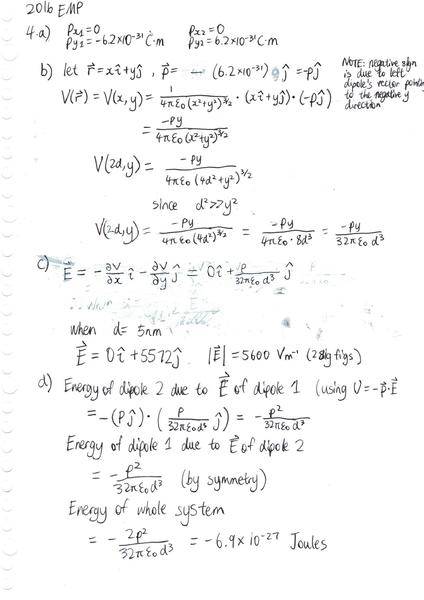 2016 EMP
4.a) Px₁=0 Px₂=0
Py₁=-6.2×10⁻³¹ C·m Py₂=6.2×10⁻³¹ C·m
b) let r⃗=xî+yĵ, p⃗= (6.2×10⁻³¹) ĵ=-pĵ
NOTE: negative sign
is due to left
dipole's vector pointing
to the negative y
direction
V(r⃗)=V(x,y)= 1/(4πε₀(x²+y²)^(3/2)) · (xî+yĵ)·(-pĵ)
= -py/(4πε₀(x²+y²)^(3/2))
V(2d,y)= -py/(4πε₀(4d²+y²)^(3/2))
since d²>>y²
V(2d,y)= -py/(4πε₀(4d²)^(3/2)) = -py/(4πε₀·8d³) = -py/(32πε₀d³)
c) E⃗ = -∂V/∂x î -∂V/∂y ĵ = 0î + p/(32πε₀d³) ĵ
when d=5nm
E⃗ = 0î+5572ĵ |E⃗|=5600 Vm⁻¹ (2sig figs)
d) Energy of dipole 2 due to E⃗ of dipole 1 (using U=-p⃗·E⃗
= -(pĵ)·(p/(32πε₀d³) ĵ) = -p²/(32πε₀d³)
Energy of dipole 1 due to E⃗ of dipole 2
= -p²/(32πε₀d³) (by symmetry)
Energy of whole system
= -2p²/(32πε₀d³) = -6.9×10⁻²⁷ Joules